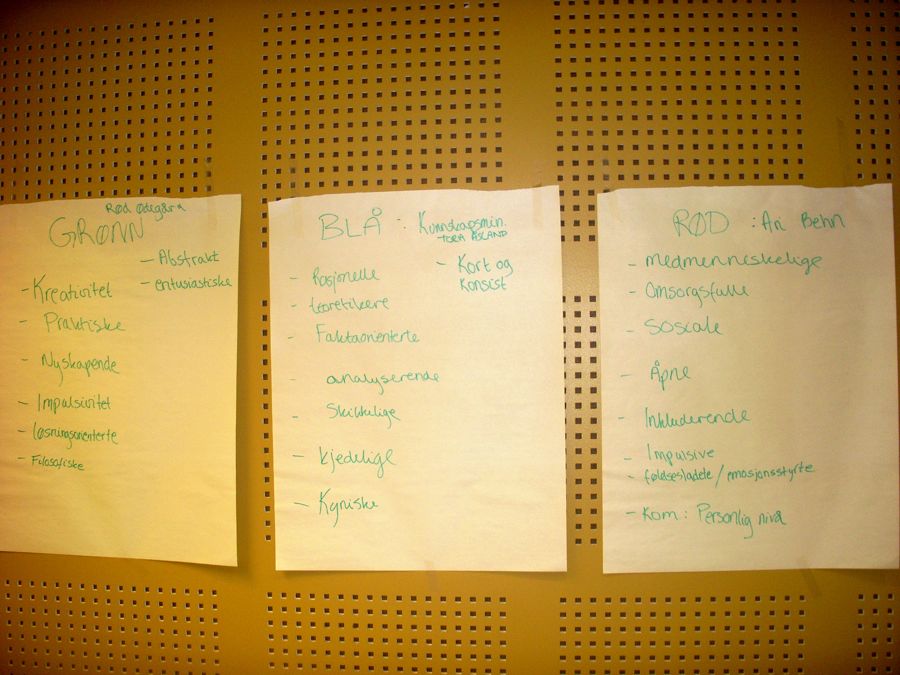 Rød Ødegård
GRØNN
- Abstrakt
- entusiastiske
- Kreativitet
- Praktiske
- Nyskapende
- Impulsivitet
- løsningsorienterte
- Filosofiske
BLÅ : Kunnskapsmin.
TORA ÅSLAND
- Kort og
konsist
- Rasjonelle
- teoretikere
- Faktaorienterte
- analyserende
- Skikkelige
- kjedelige
- Kyniske
RØD : Ari Behn
- medmenneskelige
- Omsorgsfulle
- sosiale
- Åpne
- Inkluderende
- Impulsive
- følelsesladete / emosjonsstyrte
- Kom : Personlig nivå